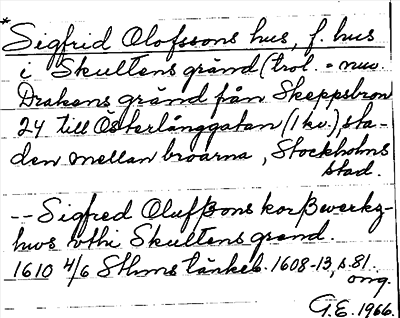 *Sigfrid Olofssons hus, f. hus
i Skultens gränd (trol. = nuv.
Drakens gränd från Skeppsbron
24 till Österlånggatan (1 kv.), sta-
den mellan broarna, Stockholms
stad.
-- Sigfred Olufßons korßwerkz-
huvs vthi Skultens grand.
1610 4/6 Sthms tänkeb. 1608-13, s. 81.
orig.
G.E. 1966.